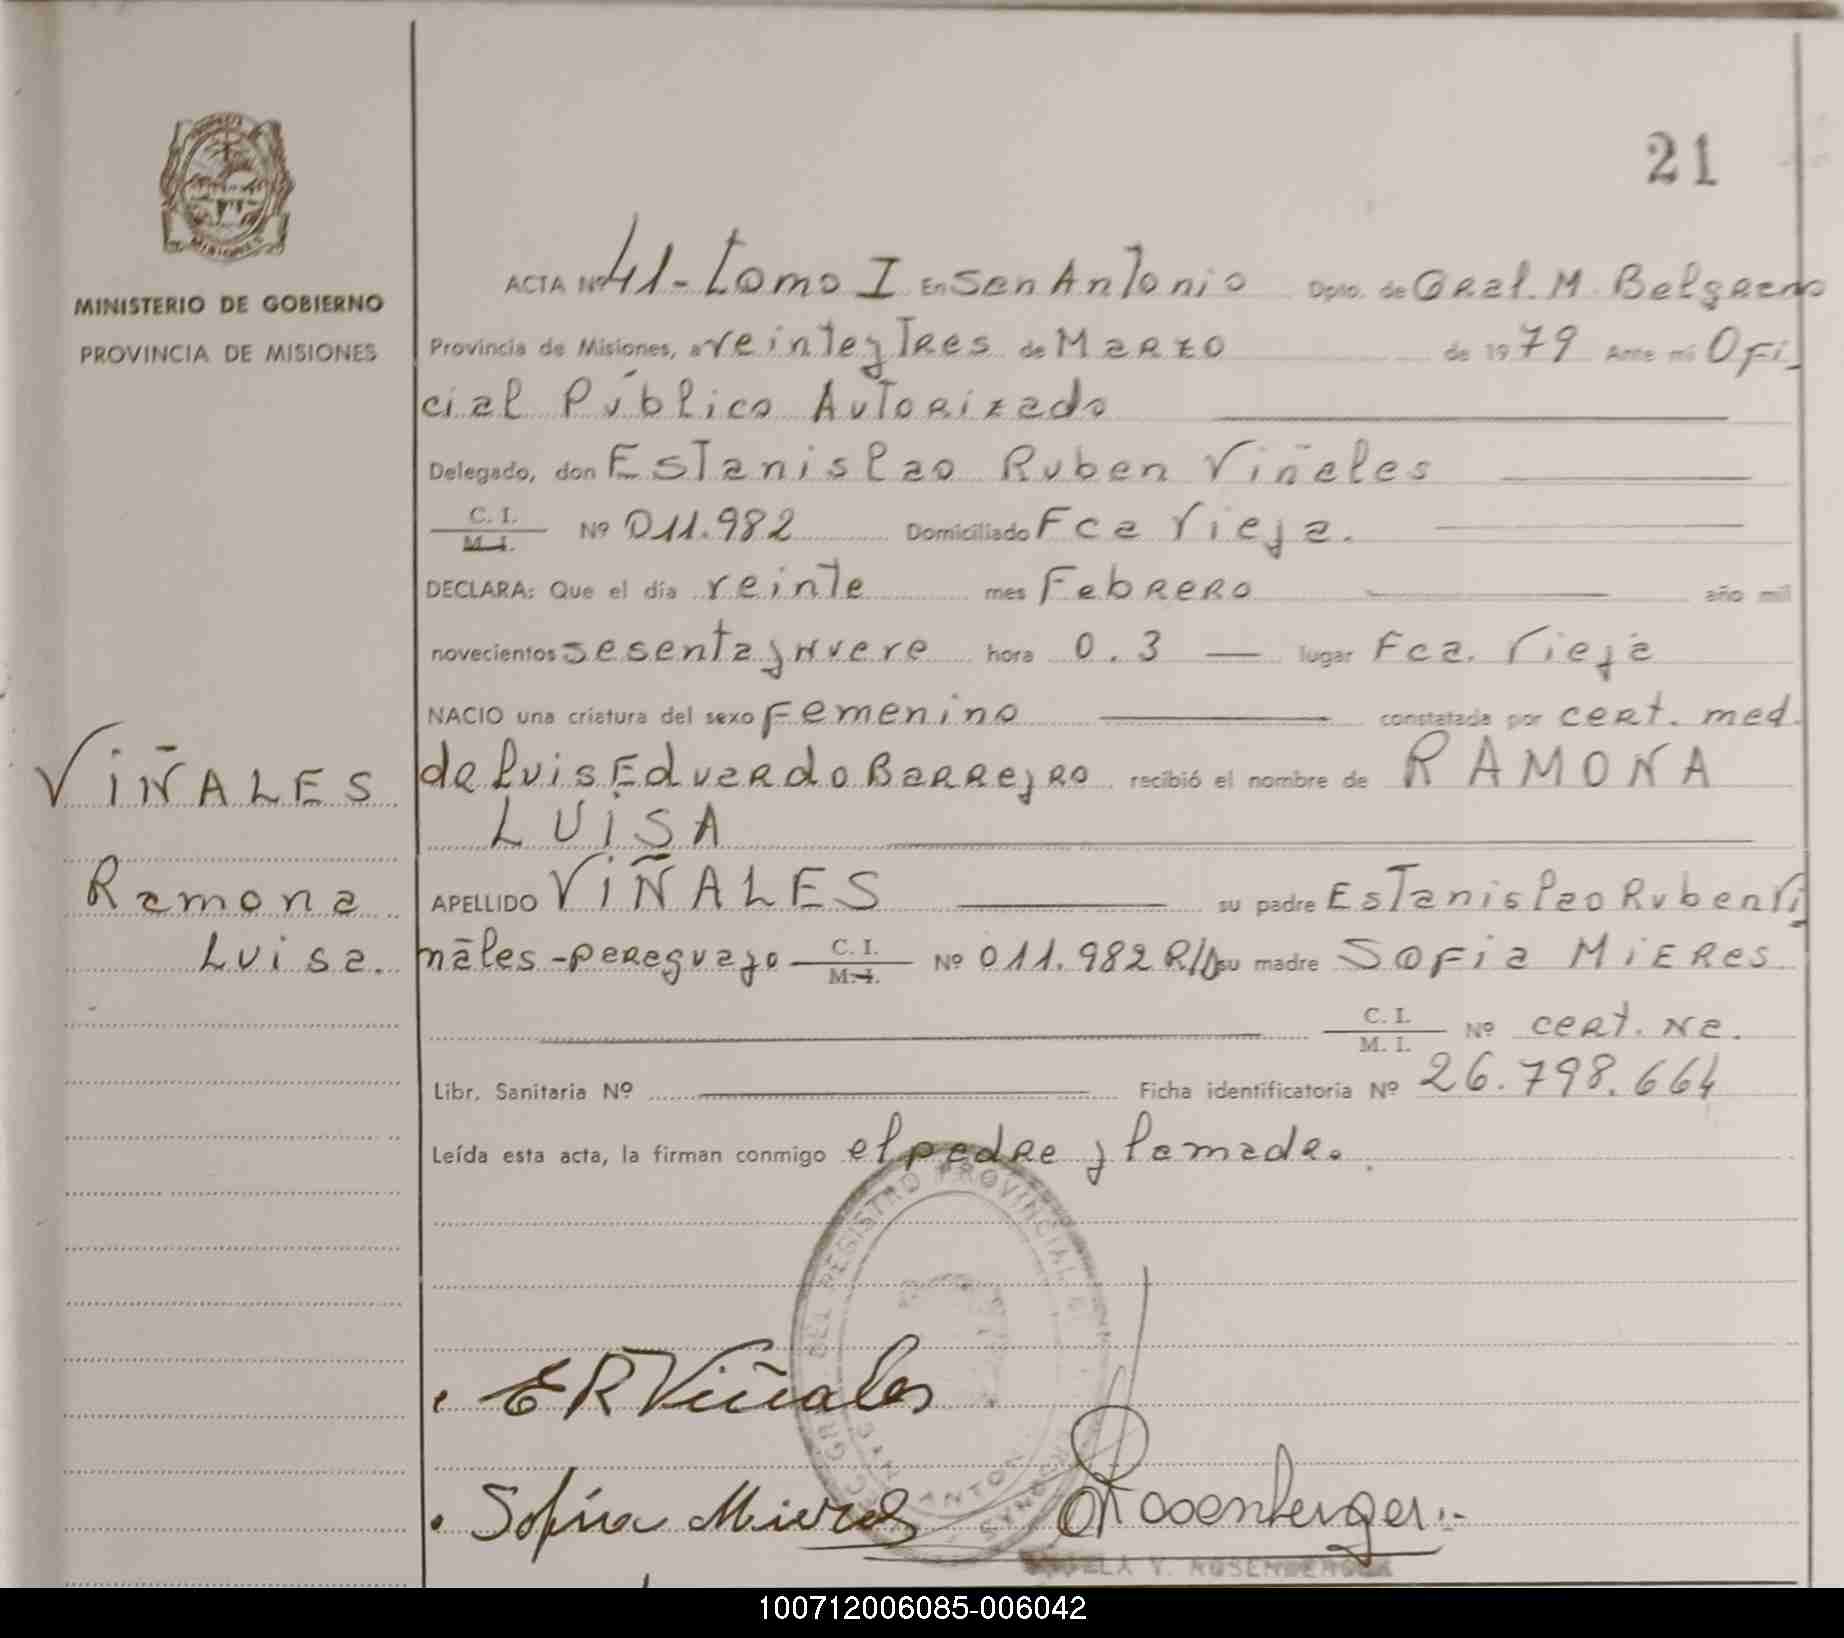 21
MINISTERIO DE GOBIERNO
PROVINCIA DE MISIONES
ACTA Nº 41 - Tomo I En San Antonio Dpto. de Gral. M. Belgrano
Provincia de Misiones, a veinteytres de Marzo de 1979 Ante mi Ofi
cial Público Autorizado
Delegado, don Estanislao Ruben Viñales
C. I.
M. I. Nº 011.982 Domiciliado Fca Vieja.
DECLARA: Que el día veinte mes Febrero año mil
novecientos sesentaynueve hora 0.3 — lugar Fca. Vieja
NACIO una criatura del sexo Femenino constatada por cert. med.
VIÑALES
de Luis Eduardo Barreyro recibió el nombre de RAMONA
LUISA
Ramona
APELLIDO VIÑALES su padre Estanislao Ruben Vi
Luisa.
ñales - paraguayo C. I. Nº 011.982 R/D su madre SOFia MiERes
M. I.
C. I. Nº cert. na.
M. I.
Libr. Sanitaria Nº Ficha identificatoria Nº 26.798.664
Leída esta acta, la firman conmigo el padre y la madre.
DEL REGISTRO PROVINCIAL DE
SAN ANTONIO
MISIONES
E R Viñales
Sofía Mieres
Rosenberger
V. ROSENBERGER
100712006085-006042